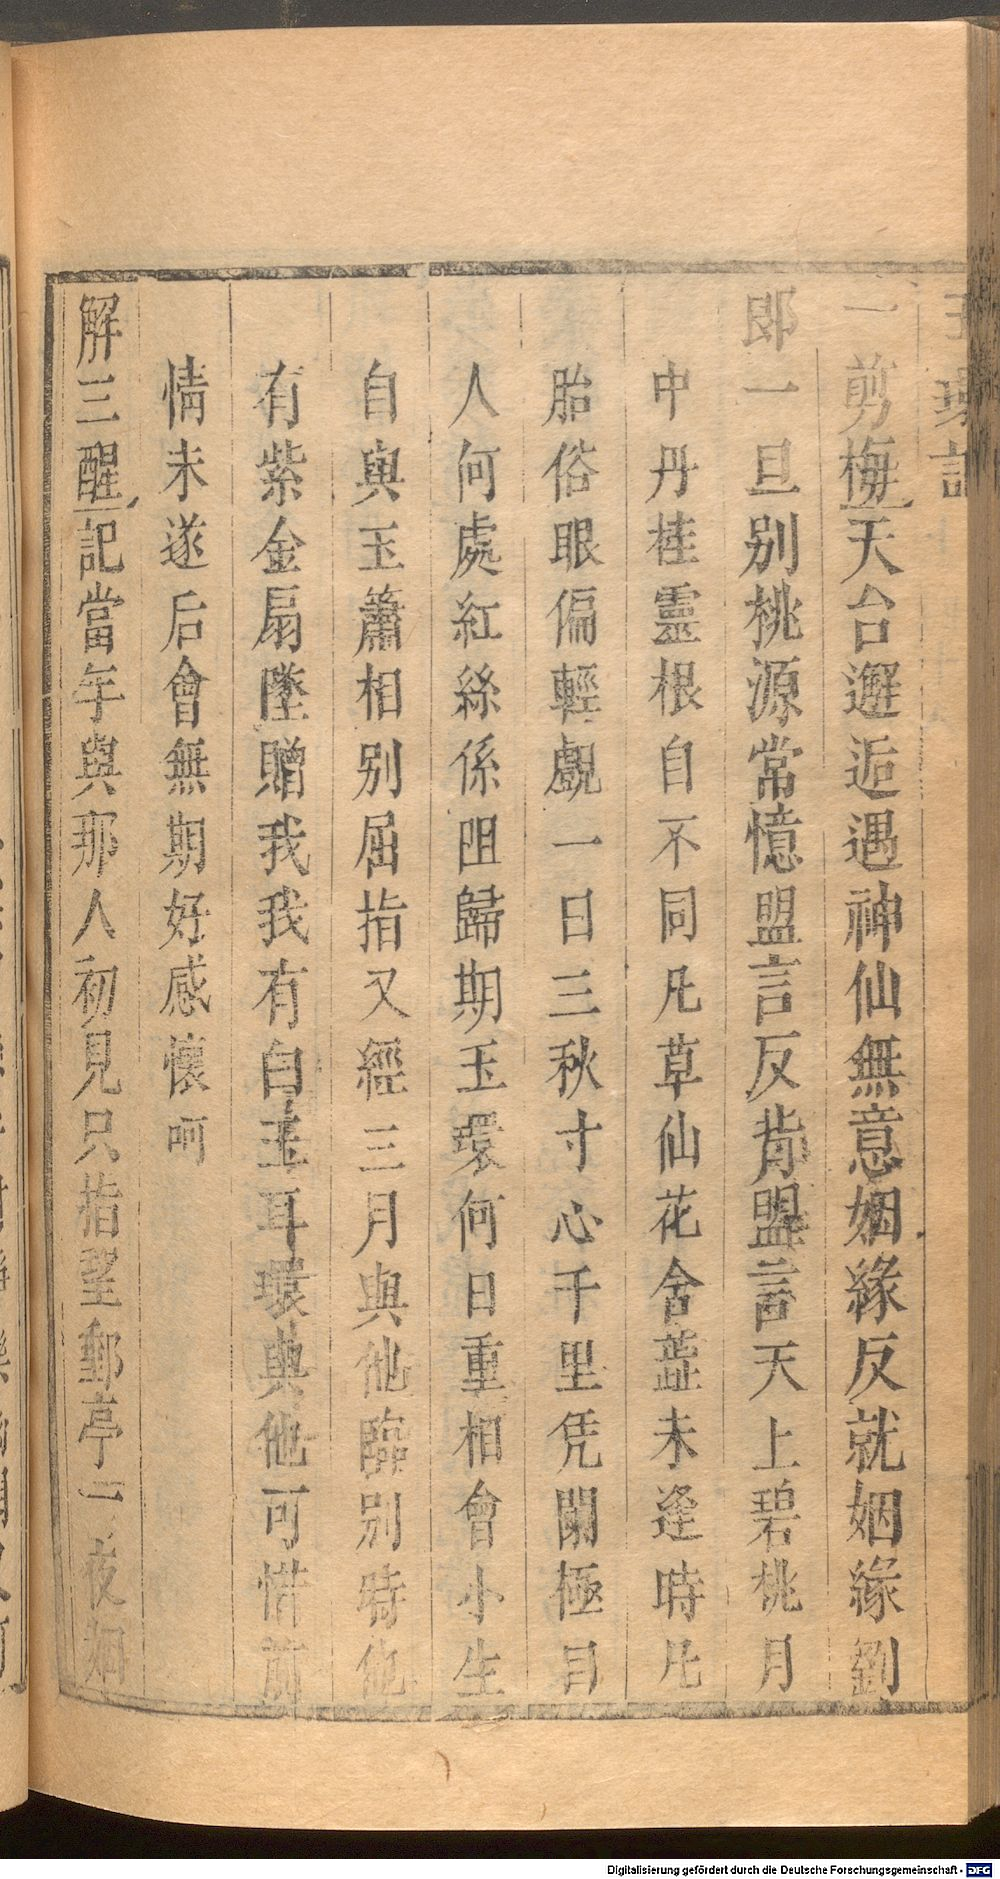 玉環記
一剪梅天台邂逅遇神仙無意姻緣反就姻緣劉
郎一旦别桃源常憶盟言反背盟言天上碧桃月
中丹桂靈根自不同凡草仙花含蕋未逢時凡
胎俗眼偏輕覷一日三秋寸心千里凭闌極目
人何處紅絲係阻歸期玉環何日重相會小生
自與玉簫相别屈指又經三月與他臨别時他
有紫金扇墜贈我我有白玉耳環與他可惜前
情未遂后會無期好感懷呵
解三醒記當年與那人初見只指望郵亭一夜姻
Digitalisierung gefördert durch die Deutsche Forschungsgemeinschaft - DFG